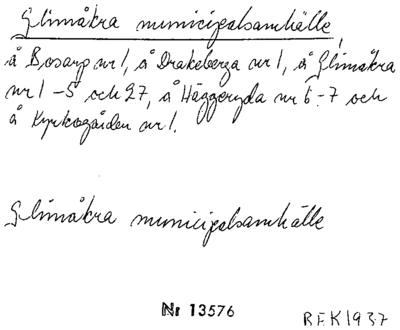 Glimåkra municipalsamhälle,
å Bosarp nr 1, å Drakeberga nr 1, å Glimåkra
nr 1 - 5 och 27, å Häggeryda nr 6 - 7 och
å Kyrkogården nr 1.
Glimåkra municipalsamhälle
Nr 13576
BFK1937